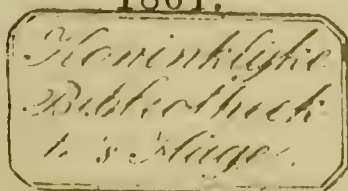 1861.
Koninklijke
Bibliotheek
te 's Hage.